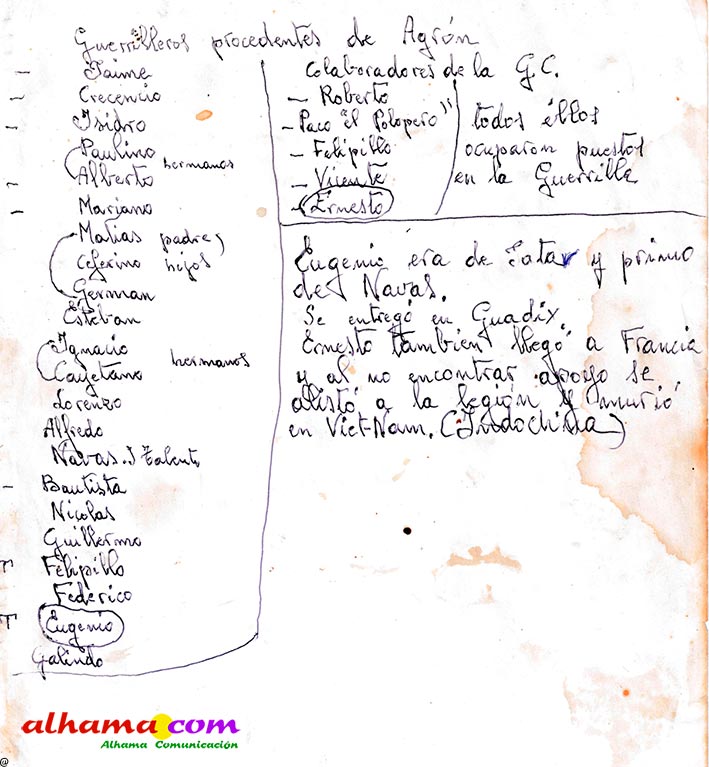 Guerrilleros procedentes de Agrón
- Jaime
Crecencio
- Isidro
Paulino
Alberto hermanos
- Mariano
Matias padre
Ceferino hijos
German
Esteban
Ignacio
Cayetano hermanos
Lorenzo
Alfredo
Navas
- Bautista
Nicolas
Guillermo
T Felipillo
Federico
T Eugenio
Galindo
Colaboradores de la G.C.
- Roberto
- Paco "el Polopero"
- Felipillo
- Vicente
- Ernesto
todos éllos
ocuparon puestos
en la Guerrilla
Eugenio era de y primo
de Navas.
Se entregó en Guadix.
Ernesto tambien llegó a Francia
y al no encontrar apoyo se
alistó a la legión y murió
en Viet-Nam. (Indochina)
alhama.com
Alhama Comunicación
@